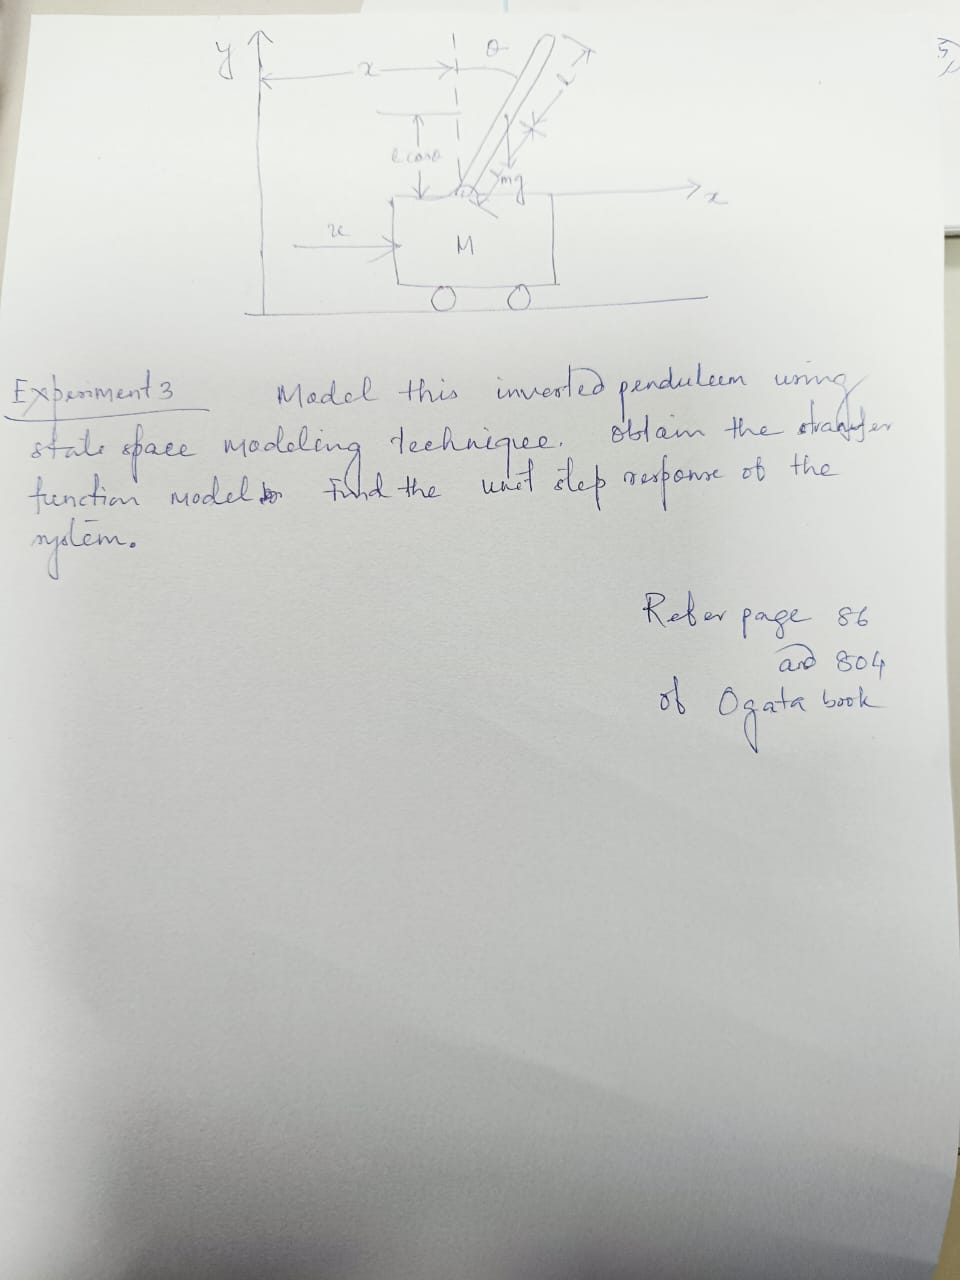 y
x
θ
l
l cosθ
mg
x
u
M
Experiment 3 Model this inverted pendulum using
state space modeling technique. obtain the transfer
function model Find the unit step response of the
system.
Refer page 86
and 804
of Ogata book